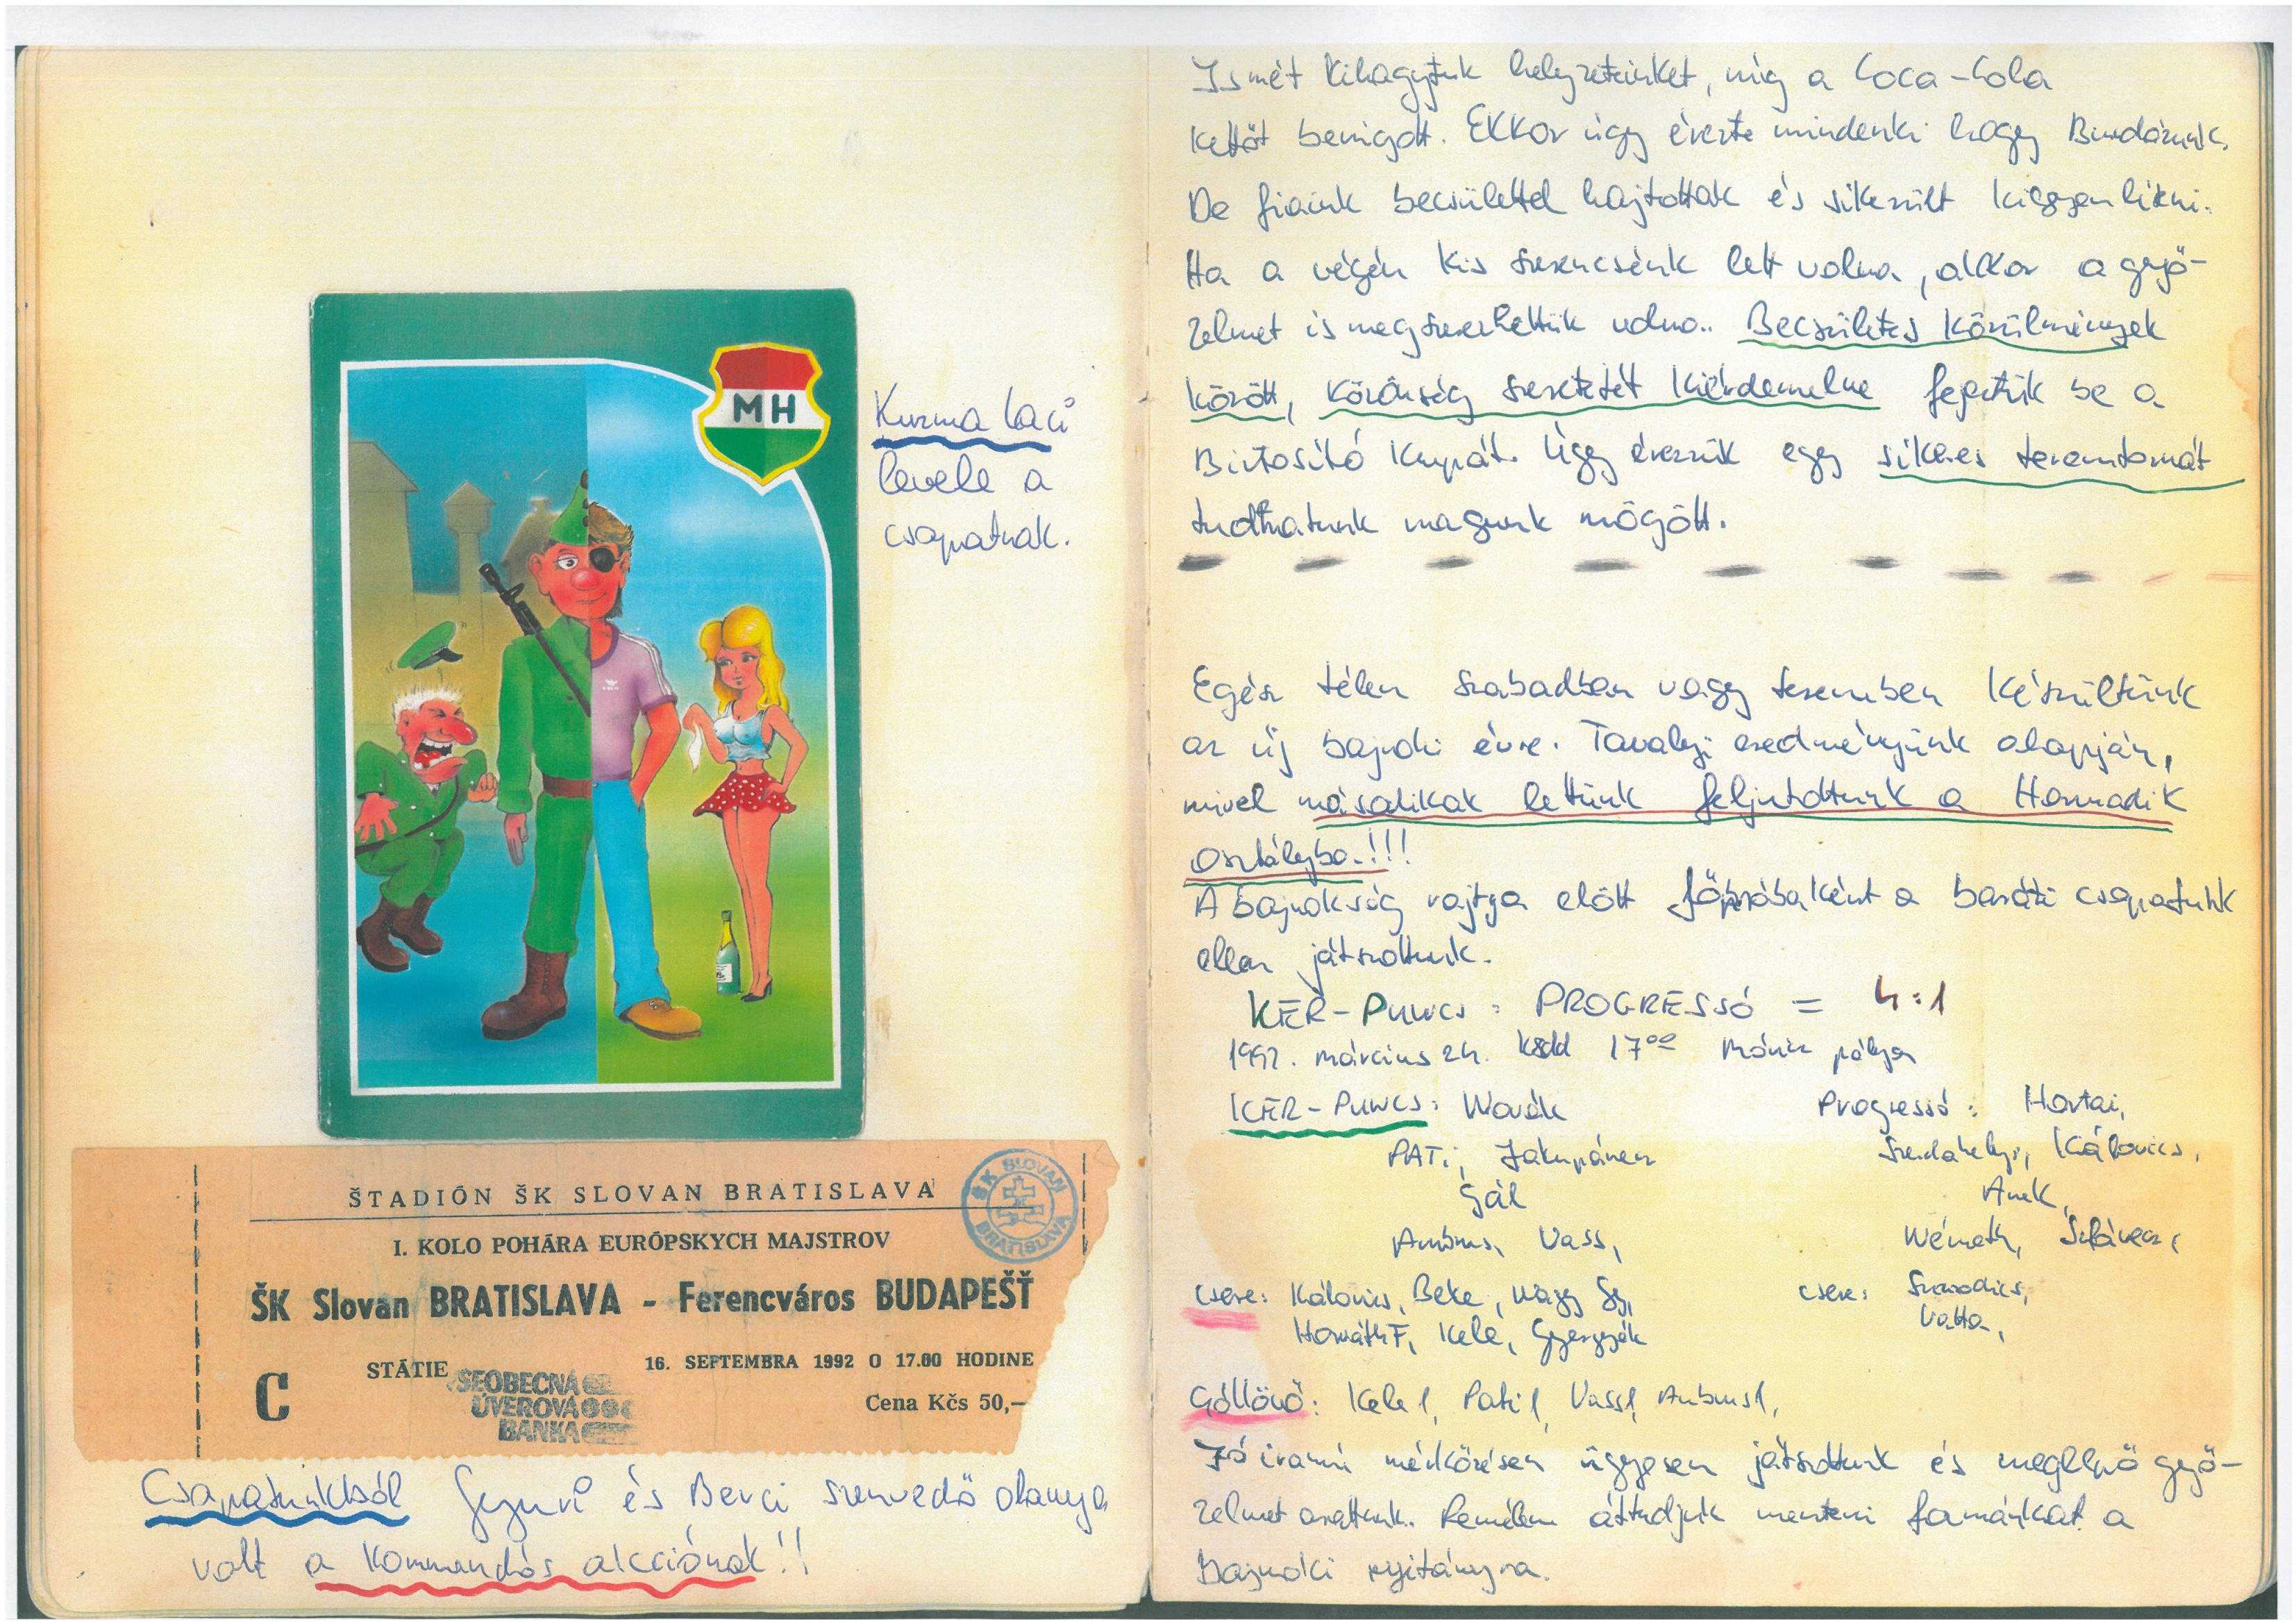 MH
Kuzma Laci
levele a
csapatnak.
ŠTADIÓN ŠK SLOVAN BRATISLAVA
ŠK SLOVAN
BRATISLAVA
I. KOLO POHÁRA EURÓPSKYCH MAJSTROV
ŠK Slovan BRATISLAVA - Ferencváros BUDAPEŠŤ
C
STÁTIE
16. SEPTEMBRA 1992 O 17.00 HODINE
Cena Kčs 50,-
ÚVEROVÁ
BANKA
Csapatunkból Gyuri és Berci szenvedő alanya
volt a kommandós akciónak!!
Ismét kihagytuk helyzeteinket, míg a Coca-Cola
kettőt berúgott. Ekkor úgy érezte mindenki hogy
De fiaink becsülettel hajtottak és sikerült kiegyenlíteni.
Ha a végén kis szerencsénk lett volna, akkor a győ-
zelmet is megszerezhettük volna.. Becsületes körülmények
között, közönség szeretetét kiérdemelve fejeztük be a
Biztosító Kupát. Úgy érezzük egy sikeres teremtornát
tudhatunk magunk mögött.
Egész télen szabadban vagy teremben készültünk
az új bajnoki évre. Tavalyi eredményünk alapján,
mivel másodikak lettünk feljutottunk a Harmadik
Osztályba.!!!
A bajnokság rajtja előtt főpróbaként a baráti csapatunk
ellen játszottunk.
KER-Puncs : PROGRESSÓ = 4:1
1992. március 24. Kedd 17⁰⁰ Móricz pálya
KER-Puncs: Novák
Progressó: Hartai,
PATi, Zakupánsz
Szendahelyi, Kálovics,
Gál
Anek,
Ambrus, Vass,
Németh,
csere: Kálovics, Beke, Nagy Gy,
csere:
Horváth F, Kele, Gyergyák
Vatta,
Góllövő: Kele 1, Pati 1, Vass 1, Ambrus 1,
Jó iramú mérkőzésen ügyesen játszottunk és meglepő győ-
zelmet arattunk. Remélem át tudjuk menteni formánkat a
Bajnoki nyitányra.